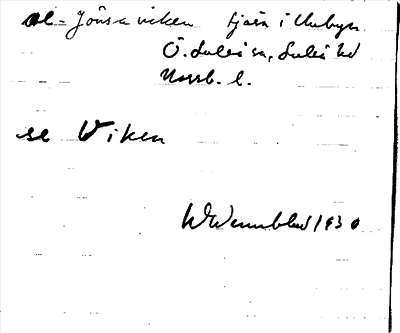 al- Jönsaviken fjärd i Unbyn
Ö. Luleå sn, Luleå tld
Norrb. l.
se Viken
W Wennblad 1930